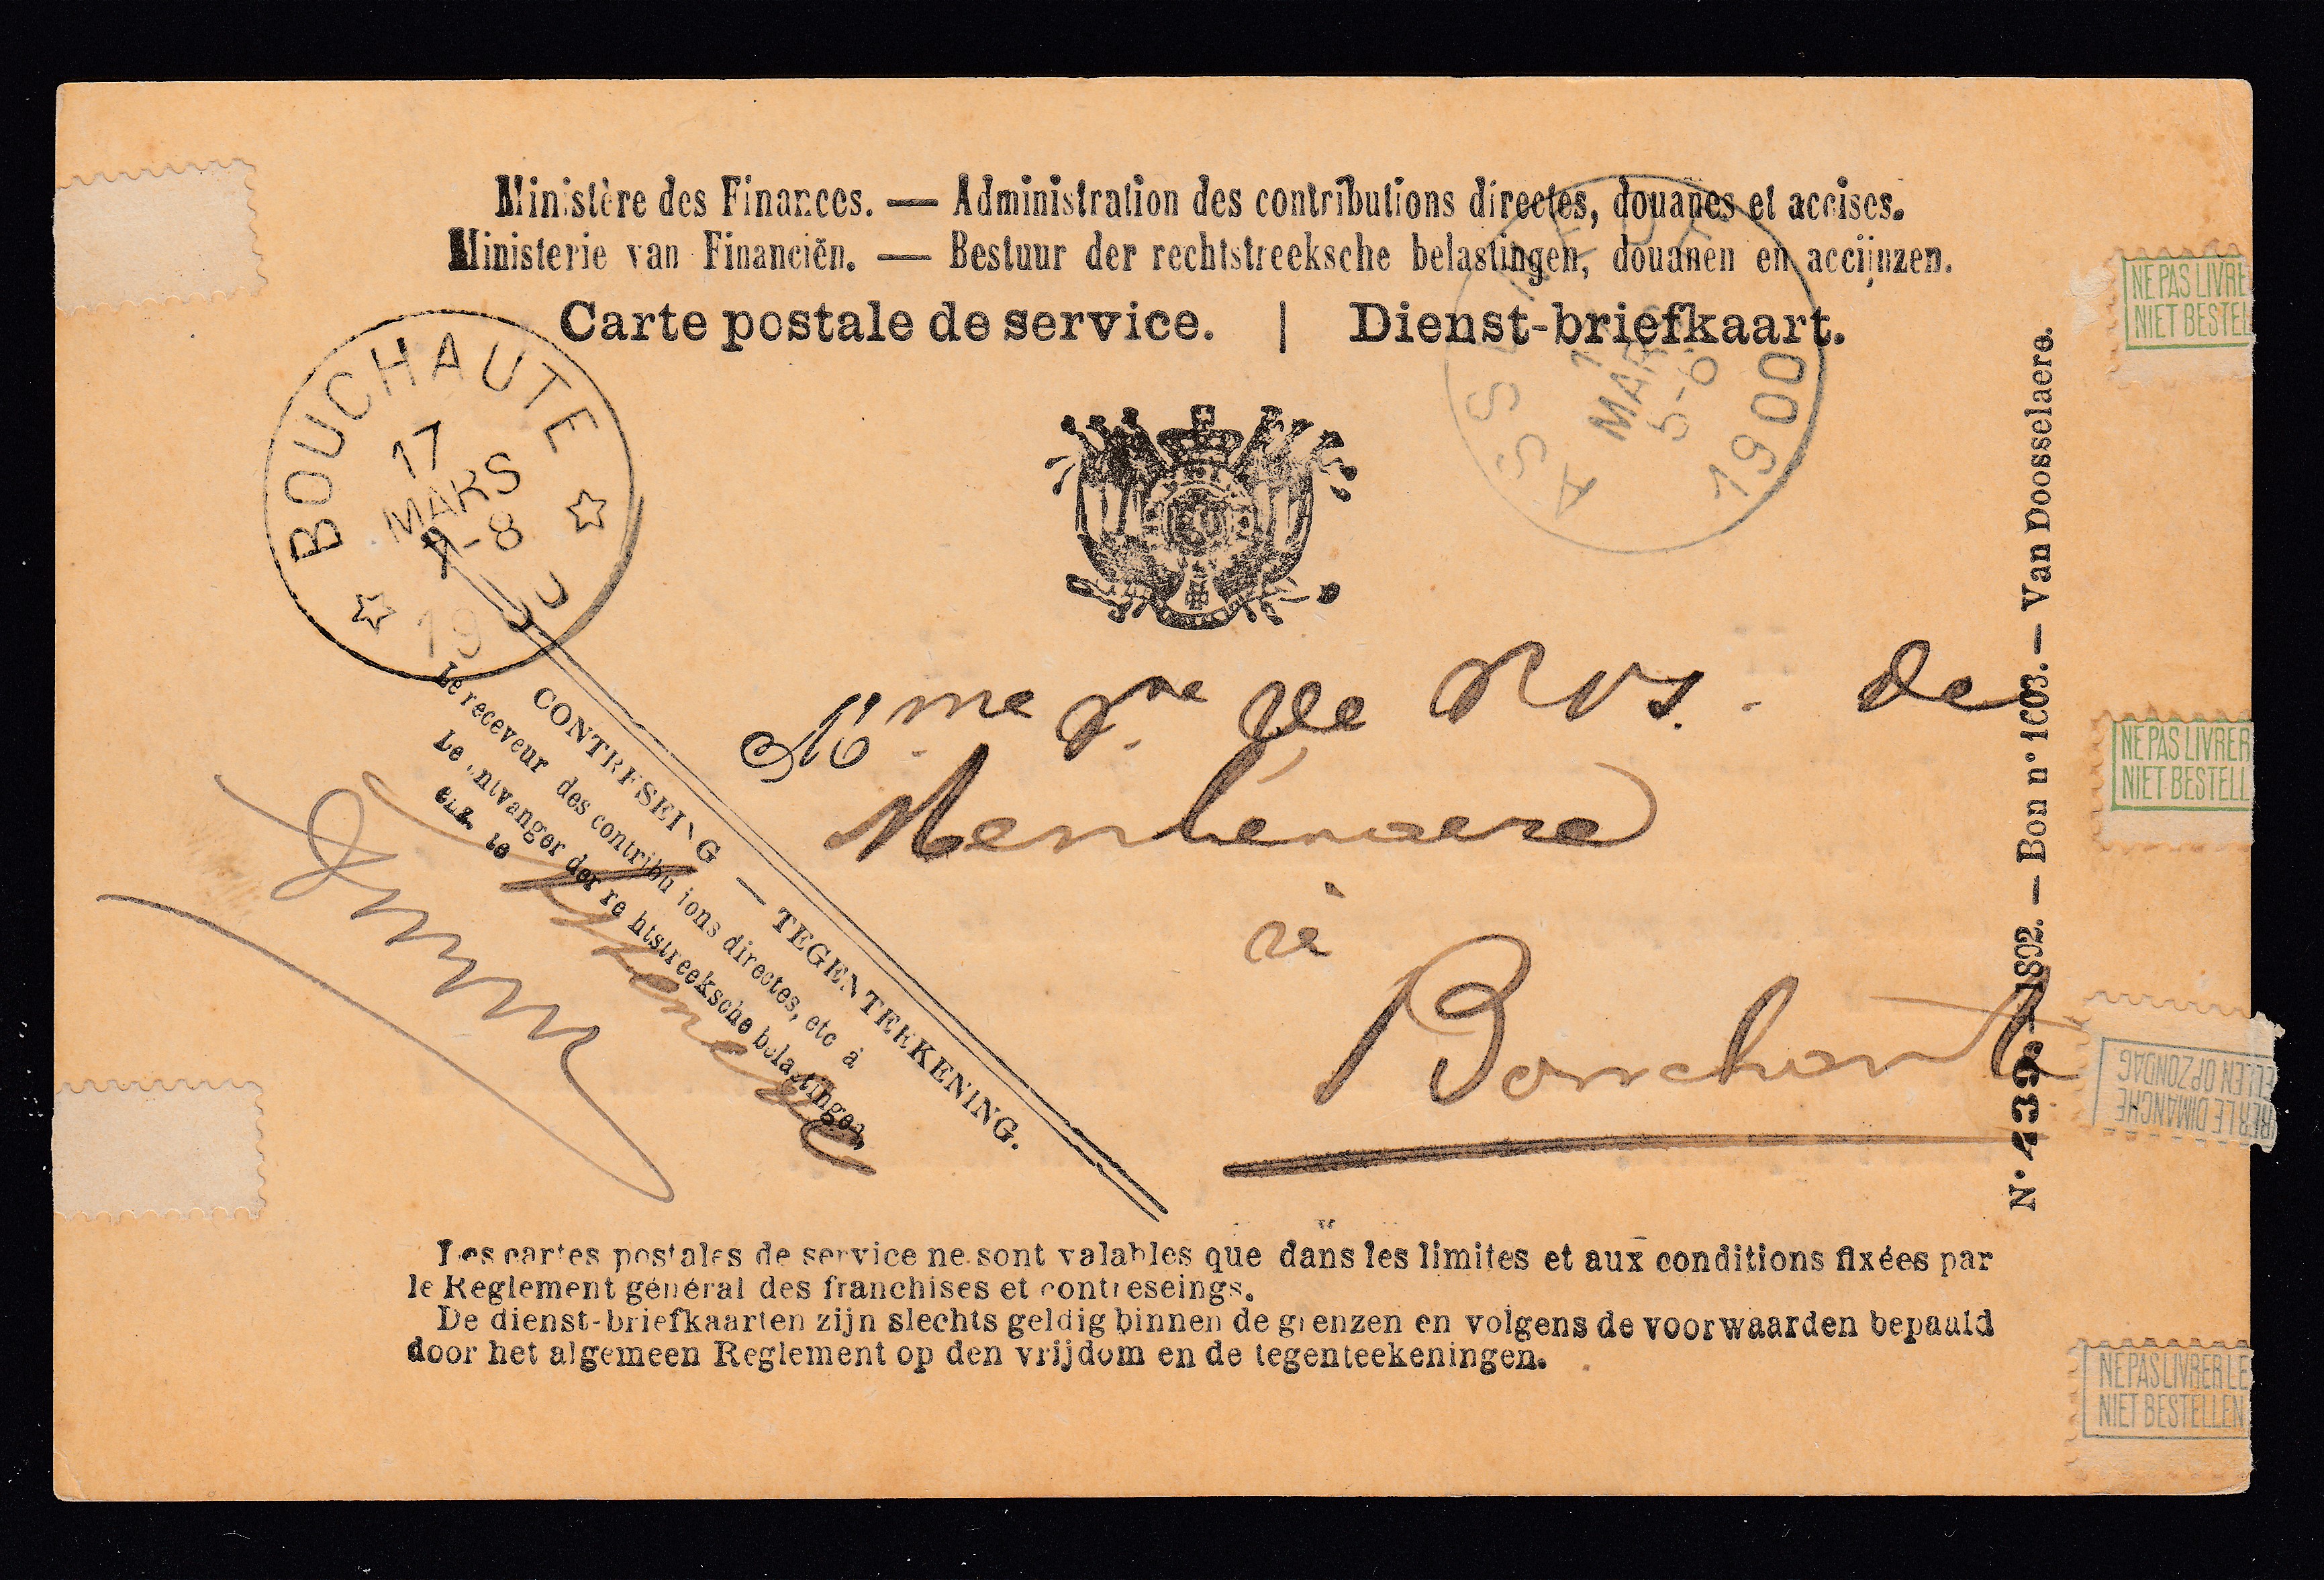 Ministère des Finances. — Administration des contributions directes, douanes et accises.
Ministerie van Financiën. — Bestuur der rechtstreeksche belastingen, douanen en accijnzen.
Carte postale de service. | Dienst-briefkaart.
BOUCHAUTE
17
MARS
7-8
19
ASS
MARS
5-6
1900
Mme de
à
Bouchaute
CONTRESEING — TEGENTEEKENING.
Le receveur des contributions directes, etc à
De ontvanger der rechtstreeksche belastingen,
enz. te
Les cartes postales de service ne sont valables que dans les limites et aux conditions fixées par
le Reglement général des franchises et contreseings.
De dienst-briefkaarten zijn slechts geldig binnen de grenzen en volgens de voorwaarden bepaald
door het algemeen Reglement op den vrijdom en de tegenteekeningen.
N° 433 — 1892. — Bon n° 1003. — Van Doosselaere.
NE PAS LIVRE
NIET BESTEL
NE PAS LIVRER
NIET BESTELL
RER LE DIMANCHE
ELLEN OP ZONDAG
NE PAS LIVRER LE
NIET BESTELLEN